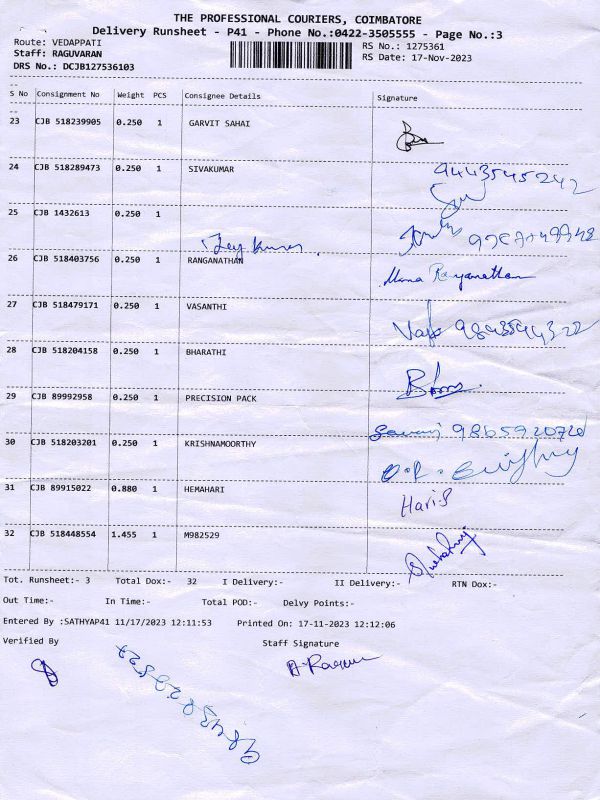 THE PROFESSIONAL COURIERS, COIMBATORE
Delivery Runsheet - P41 - Phone No.:0422-3505555 - Page No.:3
Route: VEDAPPATI RS No.: 1275361
Staff: RAGUVARAN RS Date: 17-Nov-2023
DRS No.: DCJB127536103
S No Consignment No Weight PCS Consignee Details Signature
23 CJB 518239905 0.250 1 GARVIT SAHAI
24 CJB 518289473 0.250 1 SIVAKUMAR 9443545242
25 CJB 1432613 0.250 1
26 CJB 518403756 0.250 1 RANGANATHAN
27 CJB 518479171 0.250 1 VASANTHI
28 CJB 518204158 0.250 1 BHARATHI
29 CJB 89992958 0.250 1 PRECISION PACK
30 CJB 518203201 0.250 1 KRISHNAMOORTHY
31 CJB 89915022 0.880 1 HEMAHARI Hari.S
32 CJB 518448554 1.455 1 M982529
Tot. Runsheet:- 3 Total Dox:- 32 I Delivery:- II Delivery:- RTN Dox:-
Out Time:- In Time:- Total POD:- Delvy Points:-
Entered By :SATHYAP41 11/17/2023 12:11:53 Printed On: 17-11-2023 12:12:06
Verified By Staff Signature